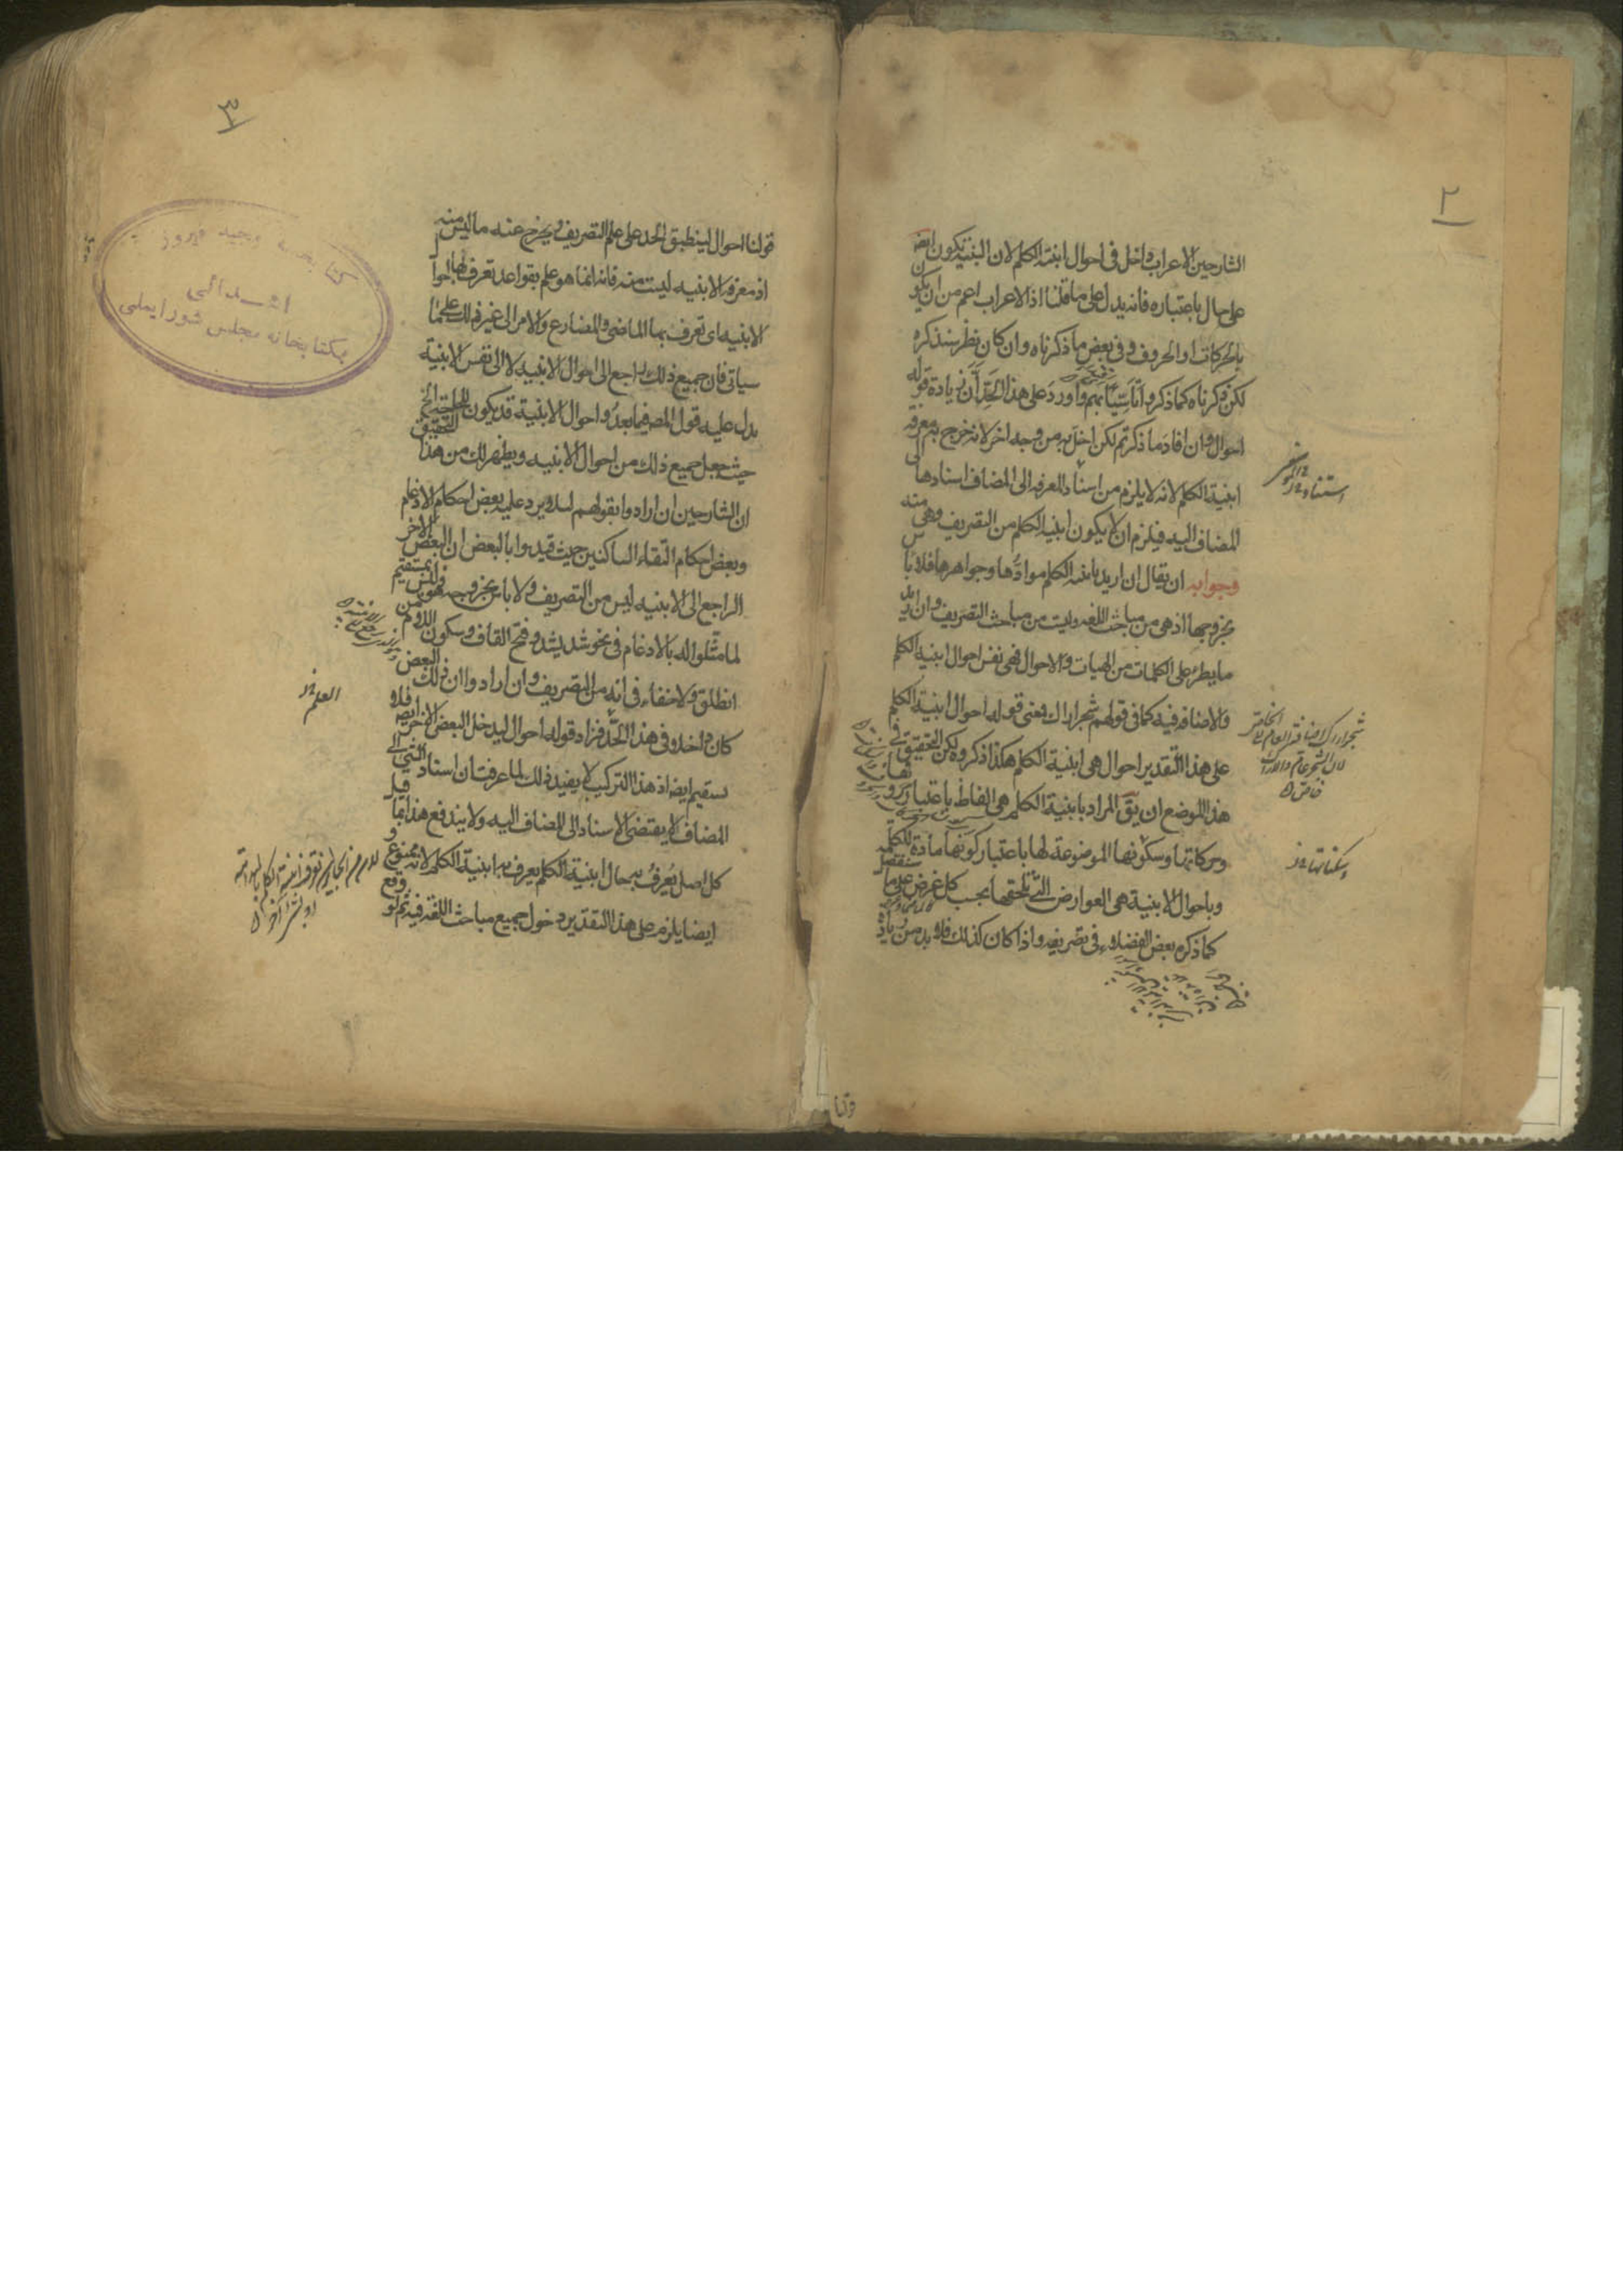 ٢
الشارحين الاعراب داخل فى احوال ابنية الكلم لان البنية تكون ايضا
على حال باعتباره فانه يدل على ما قلنا اذ الاعراب اعم من ان يكون
بالحركات او الحروف وفى بعض ما ذكرناه وان كان نظر سنذكره
لكن ذكرناه كما ذكروا تأسّيًا بهم واورد على هذا الحد ان زيادة قوله
احوال وان افاد ما ذكرتم لكن اخل به من وجه اخر لانه خرج به معرفة
ابنية الكلم لانه لا يلزم من اسناد المعرفه الى المضاف اسنادها الى
المضاف اليه فيلزم ان لا يكون ابنية الكلم من التصريف وهى منه
وجوابه ان يقال ان اريد بابنية الكلم موادّها وجواهرها فلا باس
بخروجها اذ هى من مباحث اللغه وليست من مباحث التصريف وان اريد
ما يطرء على الكلمات من الهيات والاحوال فهى نفس احوال ابنية الكلم
والاضافه فيه كما فى قولهم شجر اراك فمعنى قوله احوال ابنية الكلم
على هذا التقدير احوال هى ابنية الكلم هكذا ذكروه لكن التحقيق فى
هذا الموضع ان يق المراد بابنية الكلم هى الفاظ باعتبار حروفها
وحركاتها وسكونها الموضوعة لها باعتبار كونها مادة للكلمة
وباحوال الابنية هى العوارض التى تلحقها بحسب كل غرض على ما سنفصل
كما ذكره بعض الفضلاء فى تصريفه واذا كان كذلك فلا بد من زيادة
شجر اراك اضافة العام الى الخاص
لان الشجر عام والاراك
خاص
وسكناتها خ
٣
قولنا احوال لينطبق الحد على علم التصريف ويخرج عنه ما ليس منه
اذ معرفة الابنيه ليست منه فانه انما هو علم بقواعد تعرف بها احوال
الابنيه اى تعرف بها الماضى والمضارع والامر الى غير ذلك على ما
سياتى فان جميع ذلك راجع الى احوال الابنيه لا الى نفس الابنية
يدل عليه قول المص فيما بعد واحوال الابنية قد يكون للحاجة الخ
حيث جعل جميع ذلك من احوال الابنيه ويظهر لك من هذا التحقيق
ان الشارحين ان ارادوا بقولهم لئلا يرد عليه بعض احكام الادغام
وبعض احكام التقاء الساكنين حيث قيدوا بالبعض ان البعض الاخر
الراجع الى الابنيه ليس من التصريف ولا باس بخروجه فليس بمستقيم
لما مثلوا له بالادغام فى نحو شد يشد وفتح القاف وسكون اللام من
انطلق ولا خفاء فى انه من التصريف وان ارادوا ان ذلك البعض
كان داخلا فى هذا الحدّ فزاد قوله احوال ليدخل البعض الاخر فلا
يستقيم ايضا اذ هذا التركيب لا يفيد ذلك لما عرفت ان اسناد الشى الى
المضاف لا يقتضى الاسناد الى المضاف اليه ولا يندفع هذا بما قيل
كل اصل يُعرف به حال ابنية الكلم يعرف به ابنية الكلم لانه ممنوع و
ايضا يلزم على هذا التقدير دخول جميع مباحث اللغة فيه ثم لو وقع
العلم خ